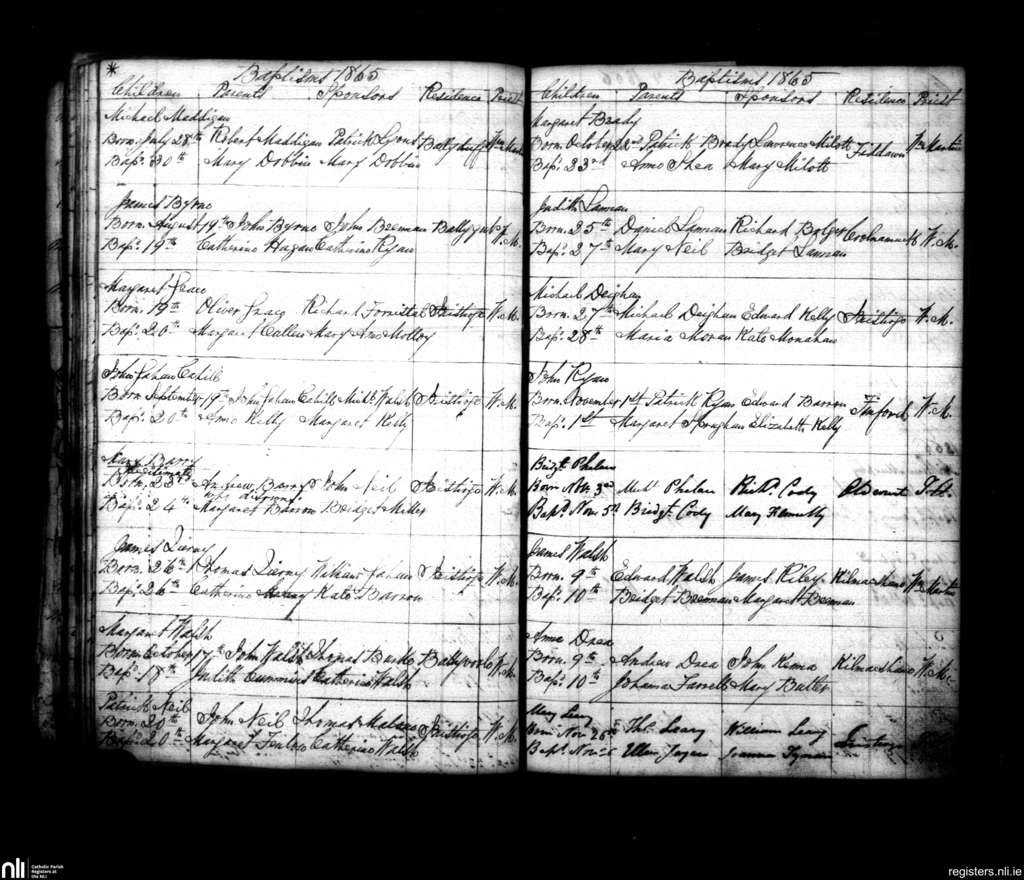 Baptisms 1865
Children Parents Sponsors Residence Priest
Michael Maddigan
Born July 28th Robert Maddigan Patrick Lyons Ballyduff Wm Martin
Bap. 30th Mary Dobbin Mary Dobbin
James Byrne
Born August 19th John Byrne John Beeman W. M.
Bap. 19th Catherine Hagan Catherine Ryan
Margaret Grace
Born 19th Oliver Grace Richard Forristal Inistioge W. M.
Bap. 20th Margaret Callen Mary Ann Molloy
John Cahill
Born September 19th John Cahill Michl. Walsh Inistioge W. M.
Bap. 20th Anne Kelly Margaret Kelly
Mary Barry
Illegitimate
Born 23rd Andrew Barry John Neil Inistioge W. M.
Bap. 24th Margaret Barron Bridget
James Tierny
Born 26th Thomas Tierny William Inistioge W. M.
Bap. 26th Catherine Kate Barron
Margaret Walsh
Born October 17th John Walsh Thomas Burke W. M.
Bap. 18th Judith Cummins Catherine Walsh
Patrick Neil
Born 20th John Neil Thomas Inistioge W. M.
Bap. 20th Margaret Catherine Walsh
Baptisms 1865
Children Parents Sponsors Residence Priest
Margaret Brady
Born October 22nd Patrick Brady Lawrence Milott Fiddown Wm Martin
Bap. 23rd Anne Shea Mary Milott
Judith Lannan
Born 25th Daniel Lannan Richard Bolger Coolnamuck W. M.
Bap. 27th Mary Neil Bridget Lannan
Michael Deighan
Born 27th Michael Deighan Edward Kelly Inistioge W. M.
Bap. 28th Maria Moran Kate Monahan
John Ryan
Born November 1st Patrick Ryan Edward Barron W. M.
Bap. 1st Margaret Elizabeth Kelly
Bridgt. Phelan
Born Nov. 3rd Michl. Phelan Richd. Cody Oldcourt
Bapt. Nov. 5th Bridgt. Cody Mary
James Walsh
Born 9th Edward Walsh James Riley Wm Martin
Bap. 10th Bridget Beeman Margaret Beeman
Anne Drea
Born 9th Andrew Drea John W. M.
Bap. 10th Johanna Farrell Mary Butler
Mary Leary
Born Nov 26th Thos. Leary William Leary
Bapt. Nov. Ellen Joanna
nli
Catholic Parish
Registers at
the NLI
registers.nli.ie